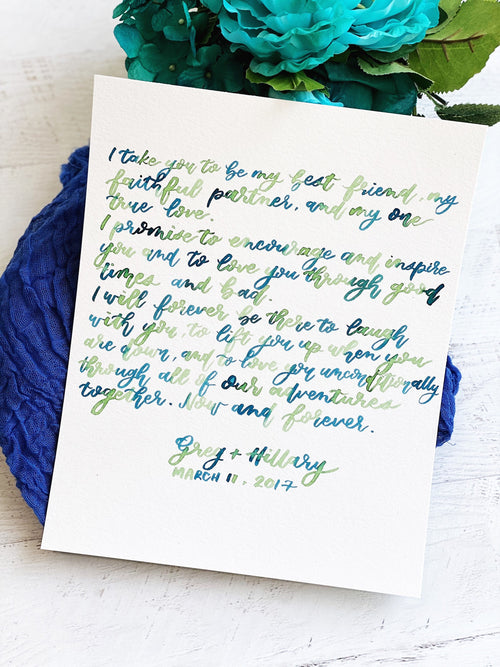 I take you to be my best friend, my
faithful partner, and my one
true love.
I promise to encourage and inspire
you and to love you through good
times and bad.
I will forever be there to laugh
with you, to lift you up when you
are down, and to love you unconditionally
through all of our adventures
together. Now and forever.
Greg + Hillary
MARCH 11, 2017